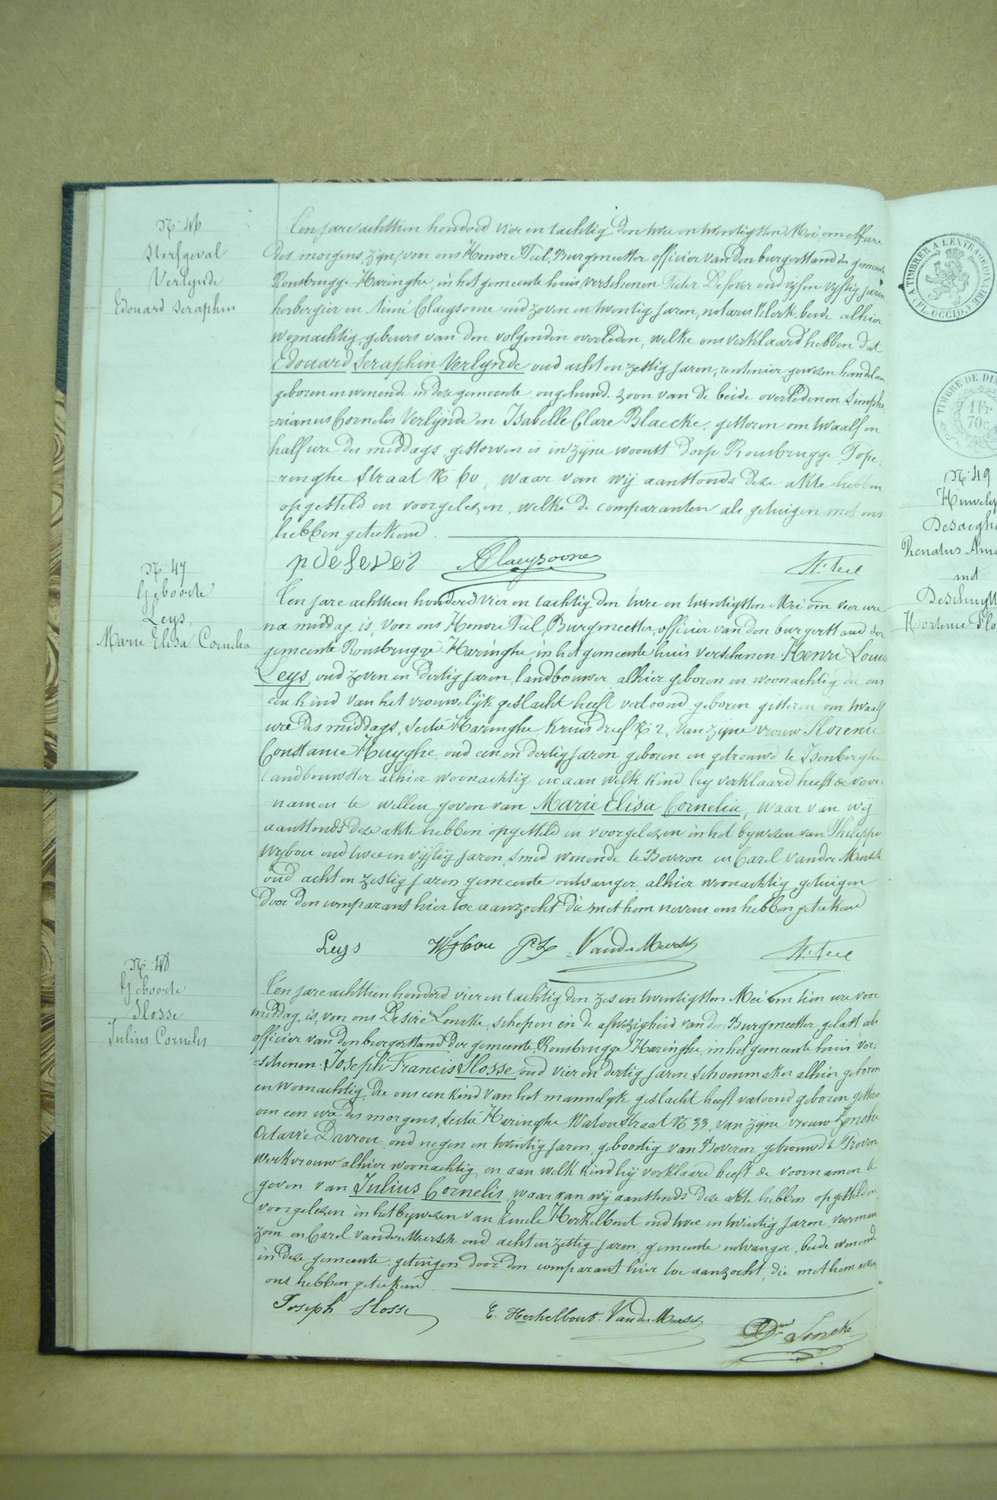 N. 46
Sterfgeval
Verlynde
Edouard Seraphin
Een jare achttien honderd vier en tachtig den twee en twintigsten Mei om elf ure
des morgens zijn, voor ons Honoré Teel, Burgmeester officier van den burgerstand der gemeente
Rousbrugge-Haringhe, in het gemeente huis verschenen Pieter Defever oud vyf en vyftig jaren
herbergier en Aimé Claeysoone oud zeven en twintig jaren, notaris klerk beide alhier
woonachtig, gebeurs van den volgenden overleden, welke ons verklaard hebben dat
Edouard Seraphin Verlynde oud acht en zestig jaren, rentenier gewezen handelaar
geboren en wonende in deze gemeente ongehuwd, zoon van de beide overledenen Simpho
rianus Cornelis Verlynde en Isabelle Clare Blaecke, gisteren om twaalf en
half ure des middags, gestorven is in zyne woonst dorp Rousbrugge, Pope-
ringhe Straat N. 60, waar van wij aanstonds deze akte hebben
opgesteld en voorgelezen, welke de comparanten als getuigen met ons
hebben geteekend.
p defever AClaeysoone H. Teel
N. 47
Geboorte
Leys
Marie Elisa Cornelia
Een jare achttien honderd vier en tachtig den twee en twintigsten Mei om vier ure
na middag, is, voor ons Honoré Teel, Burgmeester, officier van den burgerstand der
gemeente Rousbrugge Haringhe in het gemeente huis verschenen Henri Louis
Leys, oud zeven en dertig jaren, landbouwer alhier geboren en woonachtig die ons
een kind van het vrouwelijk geslacht heeft vertoond geboren gisteren om twaalf
ure des middags, sectie Haringhe Kruisdreef N. 2, van zyne vrouw Florence
Constance Huyghe, oud een en dertig jaren geboren en getrouwd te Isenberghe
landbouwster alhier woonachtig en aan welk kind hij verklaard heeft de voor-
namen te willen geven van Marie Elisa Cornelia, waar van wij
aanstonds deze akte hebben opgesteld en voorgelezen in het bywezen van Philippe
Wybou oud twee en vijftig jaren, smid wonende te Beveren en Carel Vander Meersch
oud acht en zestig jaren gemeente ontvanger, alhier woonachtig, getuigen
door den comparant hier toe aanzocht die met hem nevens ons hebben geteekend
Leys Wybou Ph. L. VanderMeersch H. Teel
N. 48
Geboorte
Flosse
Julius Cornelis
Een jare achttien honderd vier en tachtig den zes en twintigsten Mei om tien ure voor
middag, is, voor ons Desiré Loncke, schepen en de afwezigheid van den Burgmeester gelast als
officier van den burgerstand der gemeente Rousbrugge Haringhe, in het gemeente huis ver-
schenen Joseph Francis Flosse oud vier en dertig jaren schoenmaker alhier geboren
en woonachtig, die ons een kind van het mannelyk geslacht heeft vertoond geboren gisteren
om een ure des morgens, sectie Haringhe Watou Straat N. 33, van zyne vrouw
Octavie Davrou, oud negen en twintig jaren, geboortig van Beveren getrouwd te Proven
werkvrouw alhier woonachtig, en aan welk kind hij verklaard heeft de voornamen te
geven van Julius Cornelis, waar van wij aanstonds deze akte hebben opgesteld en
voorgelezen in het bywezen van Emile Herkelbout oud twee en twintig jaren,
zoon en Carel Vander Meersch oud acht en zestig jaren, gemeente ontvanger, beide wonende
in deze gemeente, getuigen door den comparant hier toe aanzocht, die met hem nevens
ons hebben geteekend.
Joseph Flosse E. Herkelbout VanderMeersch Dr. Loncke
A TIMBRER A L'EXTRAORDINAIRE
FL. OCCID.
TIMBRE DE DI
1 Fr.
70 c.
N. 49
Huwelyk
Desaegher
Renatus Ama
met
Deschuytt
Hortence Flo